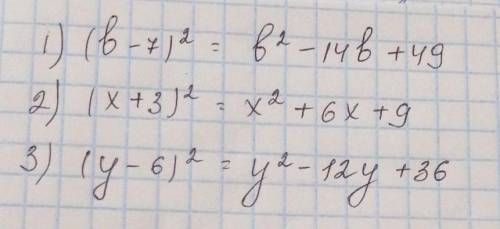 1) (b-7)² = b² - 14b + 49
2) (x+3)² = x² + 6x + 9
3) (y-6)² = y² - 12y + 36